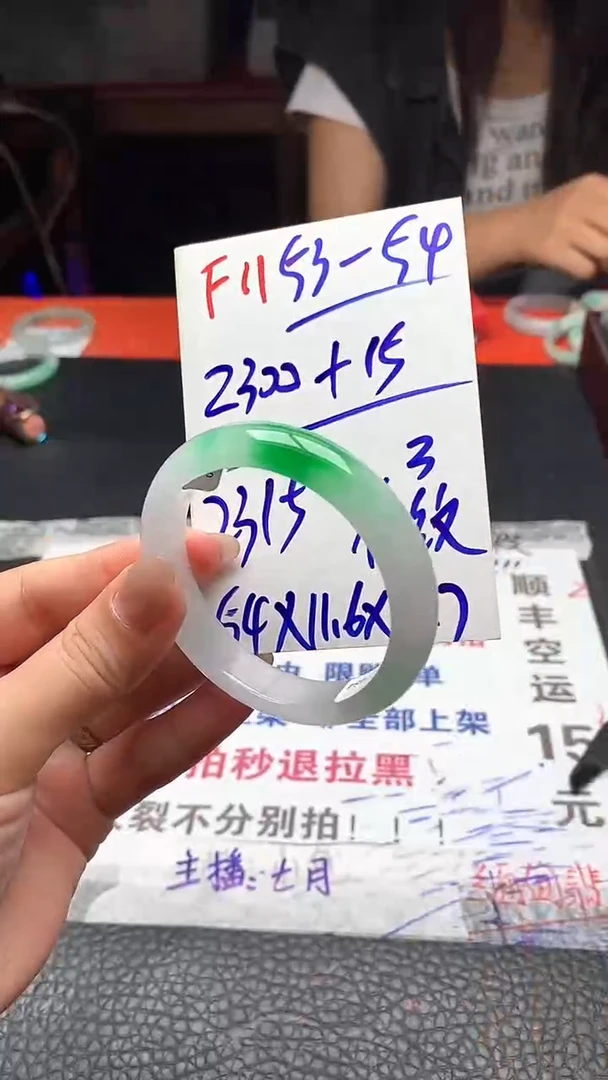 wan
g an
nd m
F11 53-54
2300+15
2315
3
纹
54×11.6×
顺丰空运
15元
限 单
全部上架
拍秒退拉黑
裂不分别拍！！！
主播：七月